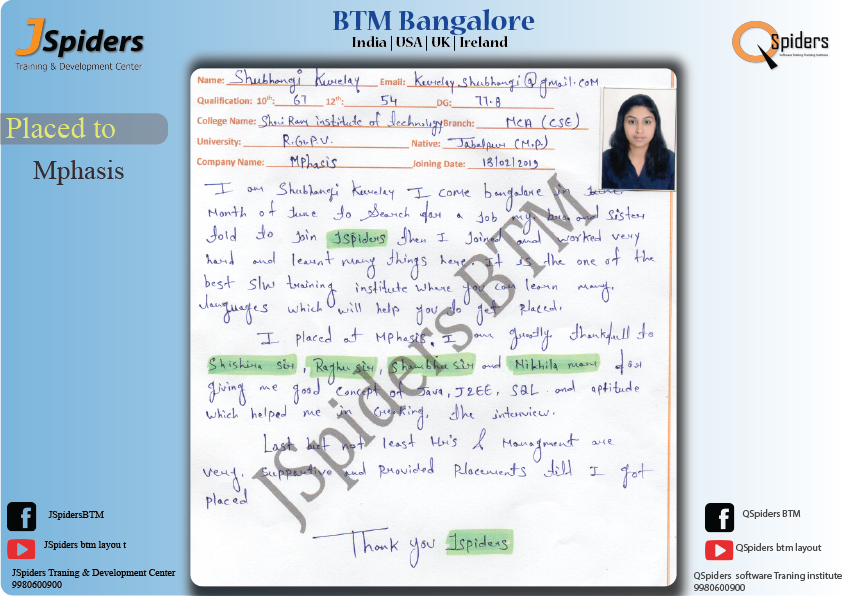 JSpiders
Training & Development Center
BTM Bangalore
India | USA | UK | Ireland
QSpiders
Software Testing Training Institute
Placed to
Mphasis
Name: Shubhangi Kurelay Email: Kurelay.shubhangi@gmail.com
Qualification: 10th: 67 12th: 54 DG: 77.8
College Name: Shri Ram institute of technology Branch: MCA (CSE)
University: R.G.P.V. Native: Jabalpur (M.P.)
Company Name: MPhasis Joining Date: 18/02/2019
I am Shubhangi Kurelay I come bangalore in
Month of June to Search for a job my bro and sister
told to join JSpiders then I joined and worked very
hard and learnt many things here. It is the one of the
best S/w training institute where you can learn many
languages which will help you to get placed.
I placed at MPhasis. I am greatly thankfull to
Shishira sir, Raghu sir, Shambhu sir and Nikhila mam for
giving me good concept of Java, J2EE, SQL and aptitude
which helped me in creaking the interview.
Last but not least Hr's & Managment are
very supportive and provided placements till I got
placed
Thank you JSpiders
JSpiders BTM
JSpidersBTM
JSpiders btm layou t
JSpiders Traning & Development Center
9980600900
QSpiders BTM
QSpiders btm layout
QSpiders software Traning institute
9980600900